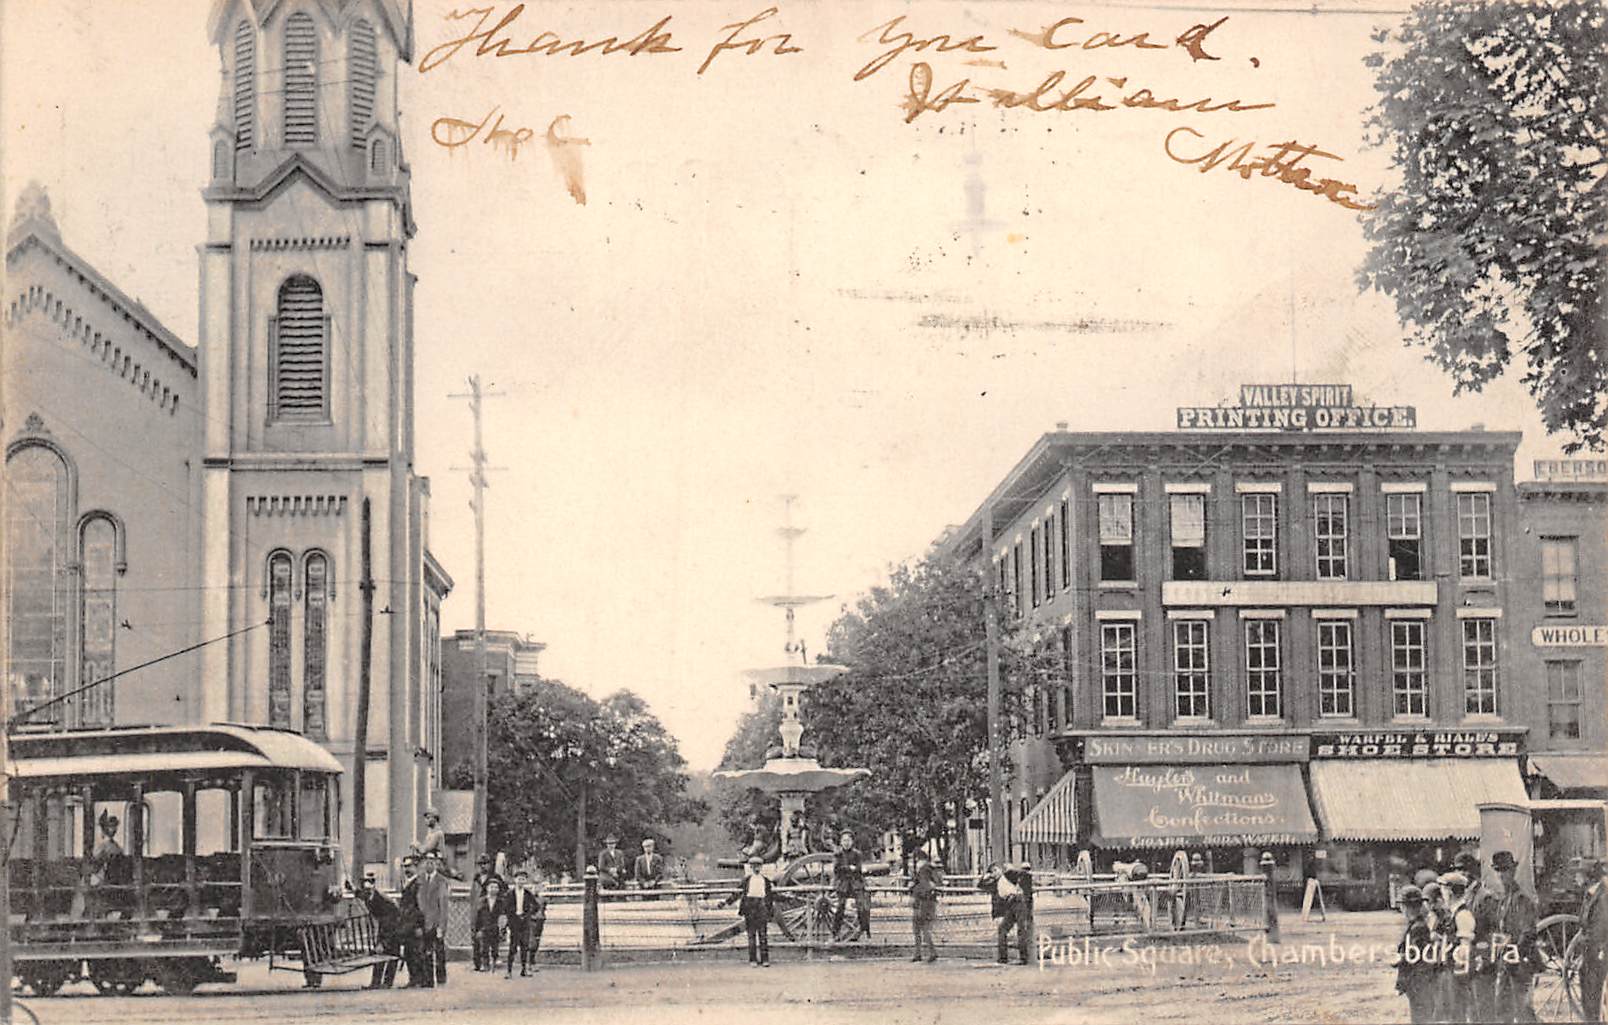 Thank for you Card.
William
VALLEY SPIRIT
PRINTING OFFICE.
EBERSO
WHOLE
SKINNER'S DRUG STORE
WARFEL & RIALES
SHOE STORE
Huyler's and
Whitmans
Confections.
CIGARS SODA WATER
Public Square, Chambersburg, Pa.